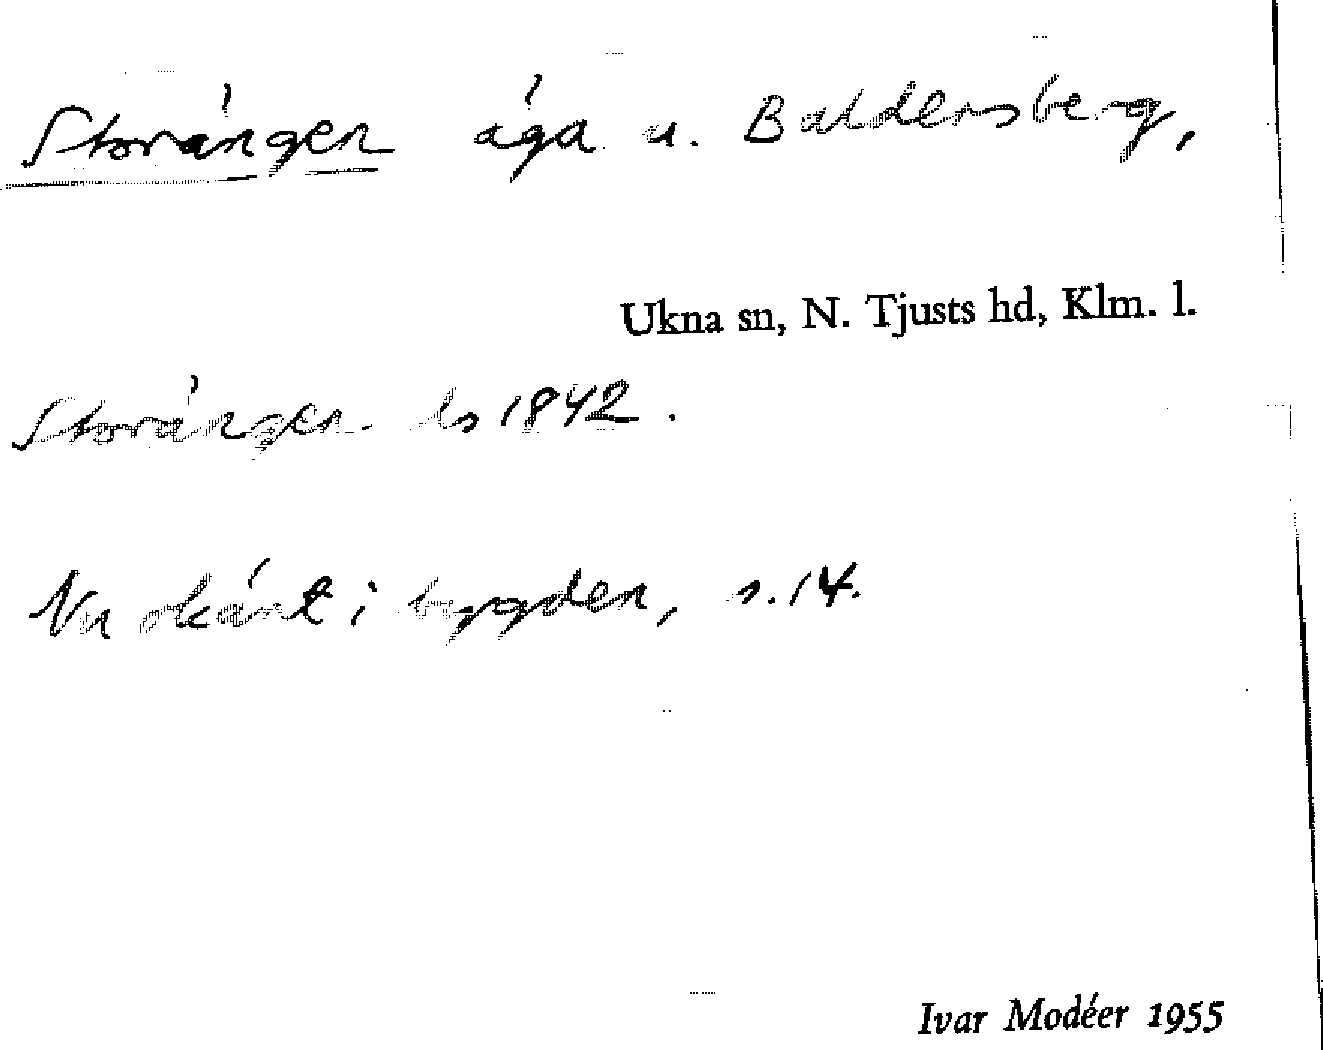 Storängen äga u. Baldersberg,
Ukna sn, N. Tjusts hd, Klm. l.
Storängen ls 1842.
Nu okänt i bygden, s. 14.
Ivar Modéer 1955